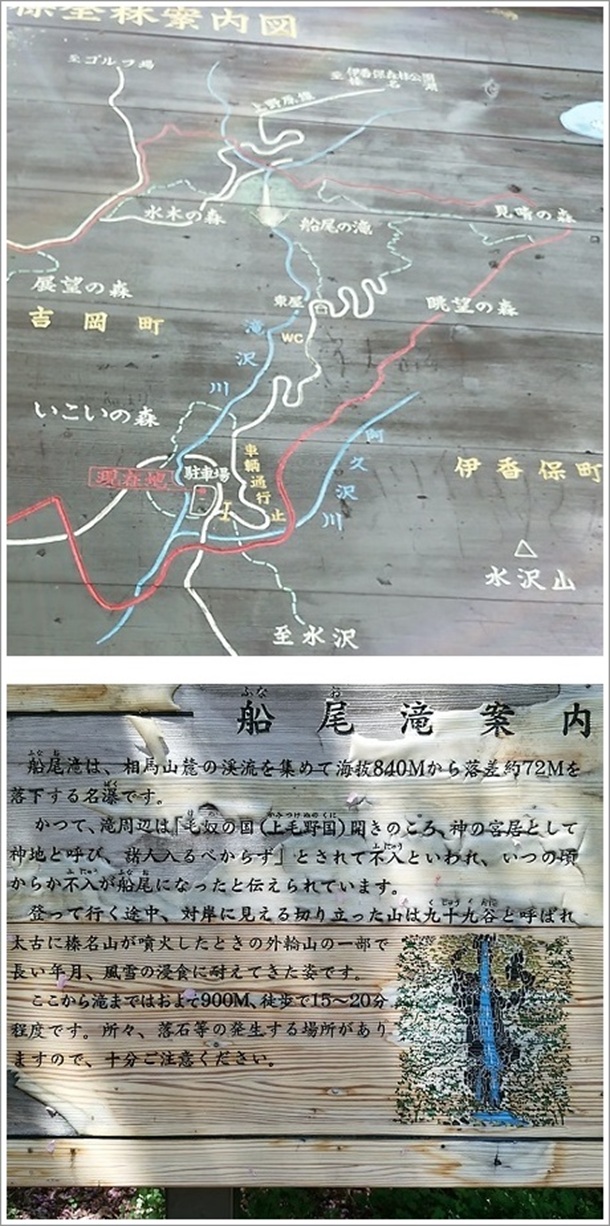 至ゴルフ場
至
伊香保森林公園
榛名湖
上野原線
水木の森
船尾の滝
見晴の森
展望の森
東屋
眺望の森
吉岡町
WC
滝沢川
いこいの森
阿久沢川
車輌通行止
現在地
駐車場
伊香保町
水沢山
至水沢
船尾滝案内
ふなお
船尾滝は、相馬山麓の渓流を集めて海抜840Mから落差約72Mを
落下する名瀑です。
かつて、滝周辺は「毛奴の国(上毛野国)開きのころ、神の宮居として
神地と呼び、諸人入るべからず」とされて不入といわれ、いつの頃
からか不入が船尾になったと伝えられています。
登って行く途中、対岸に見える切り立った山は九十九谷と呼ばれ
太古に榛名山が噴火したときの外輪山の一部で
長い年月、風雪の浸食に耐えてきた姿です。
ここから滝まではおよそ900M、徒歩で15〜20分
程度です。所々、落石等の発生する場所があり
ますので、十分ご注意ください。